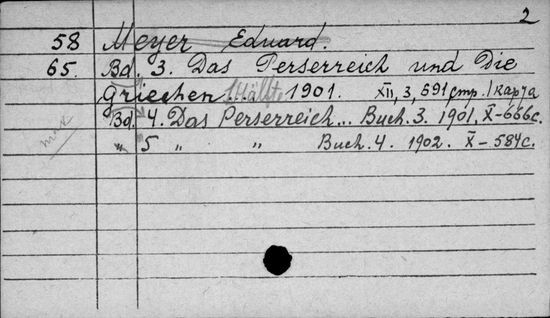 2
58 Meyer Eduard.
65. Bd. 3. Das Perserreich und Die
Griechen 1 Hälfte 1901. XII, 3, 691 стр. 1 карта
Bd. 4. Das Perserreich... Buch. 3. 1901. X-666с.
„ 5 „ „ Buch. 4. 1902. X-584с.